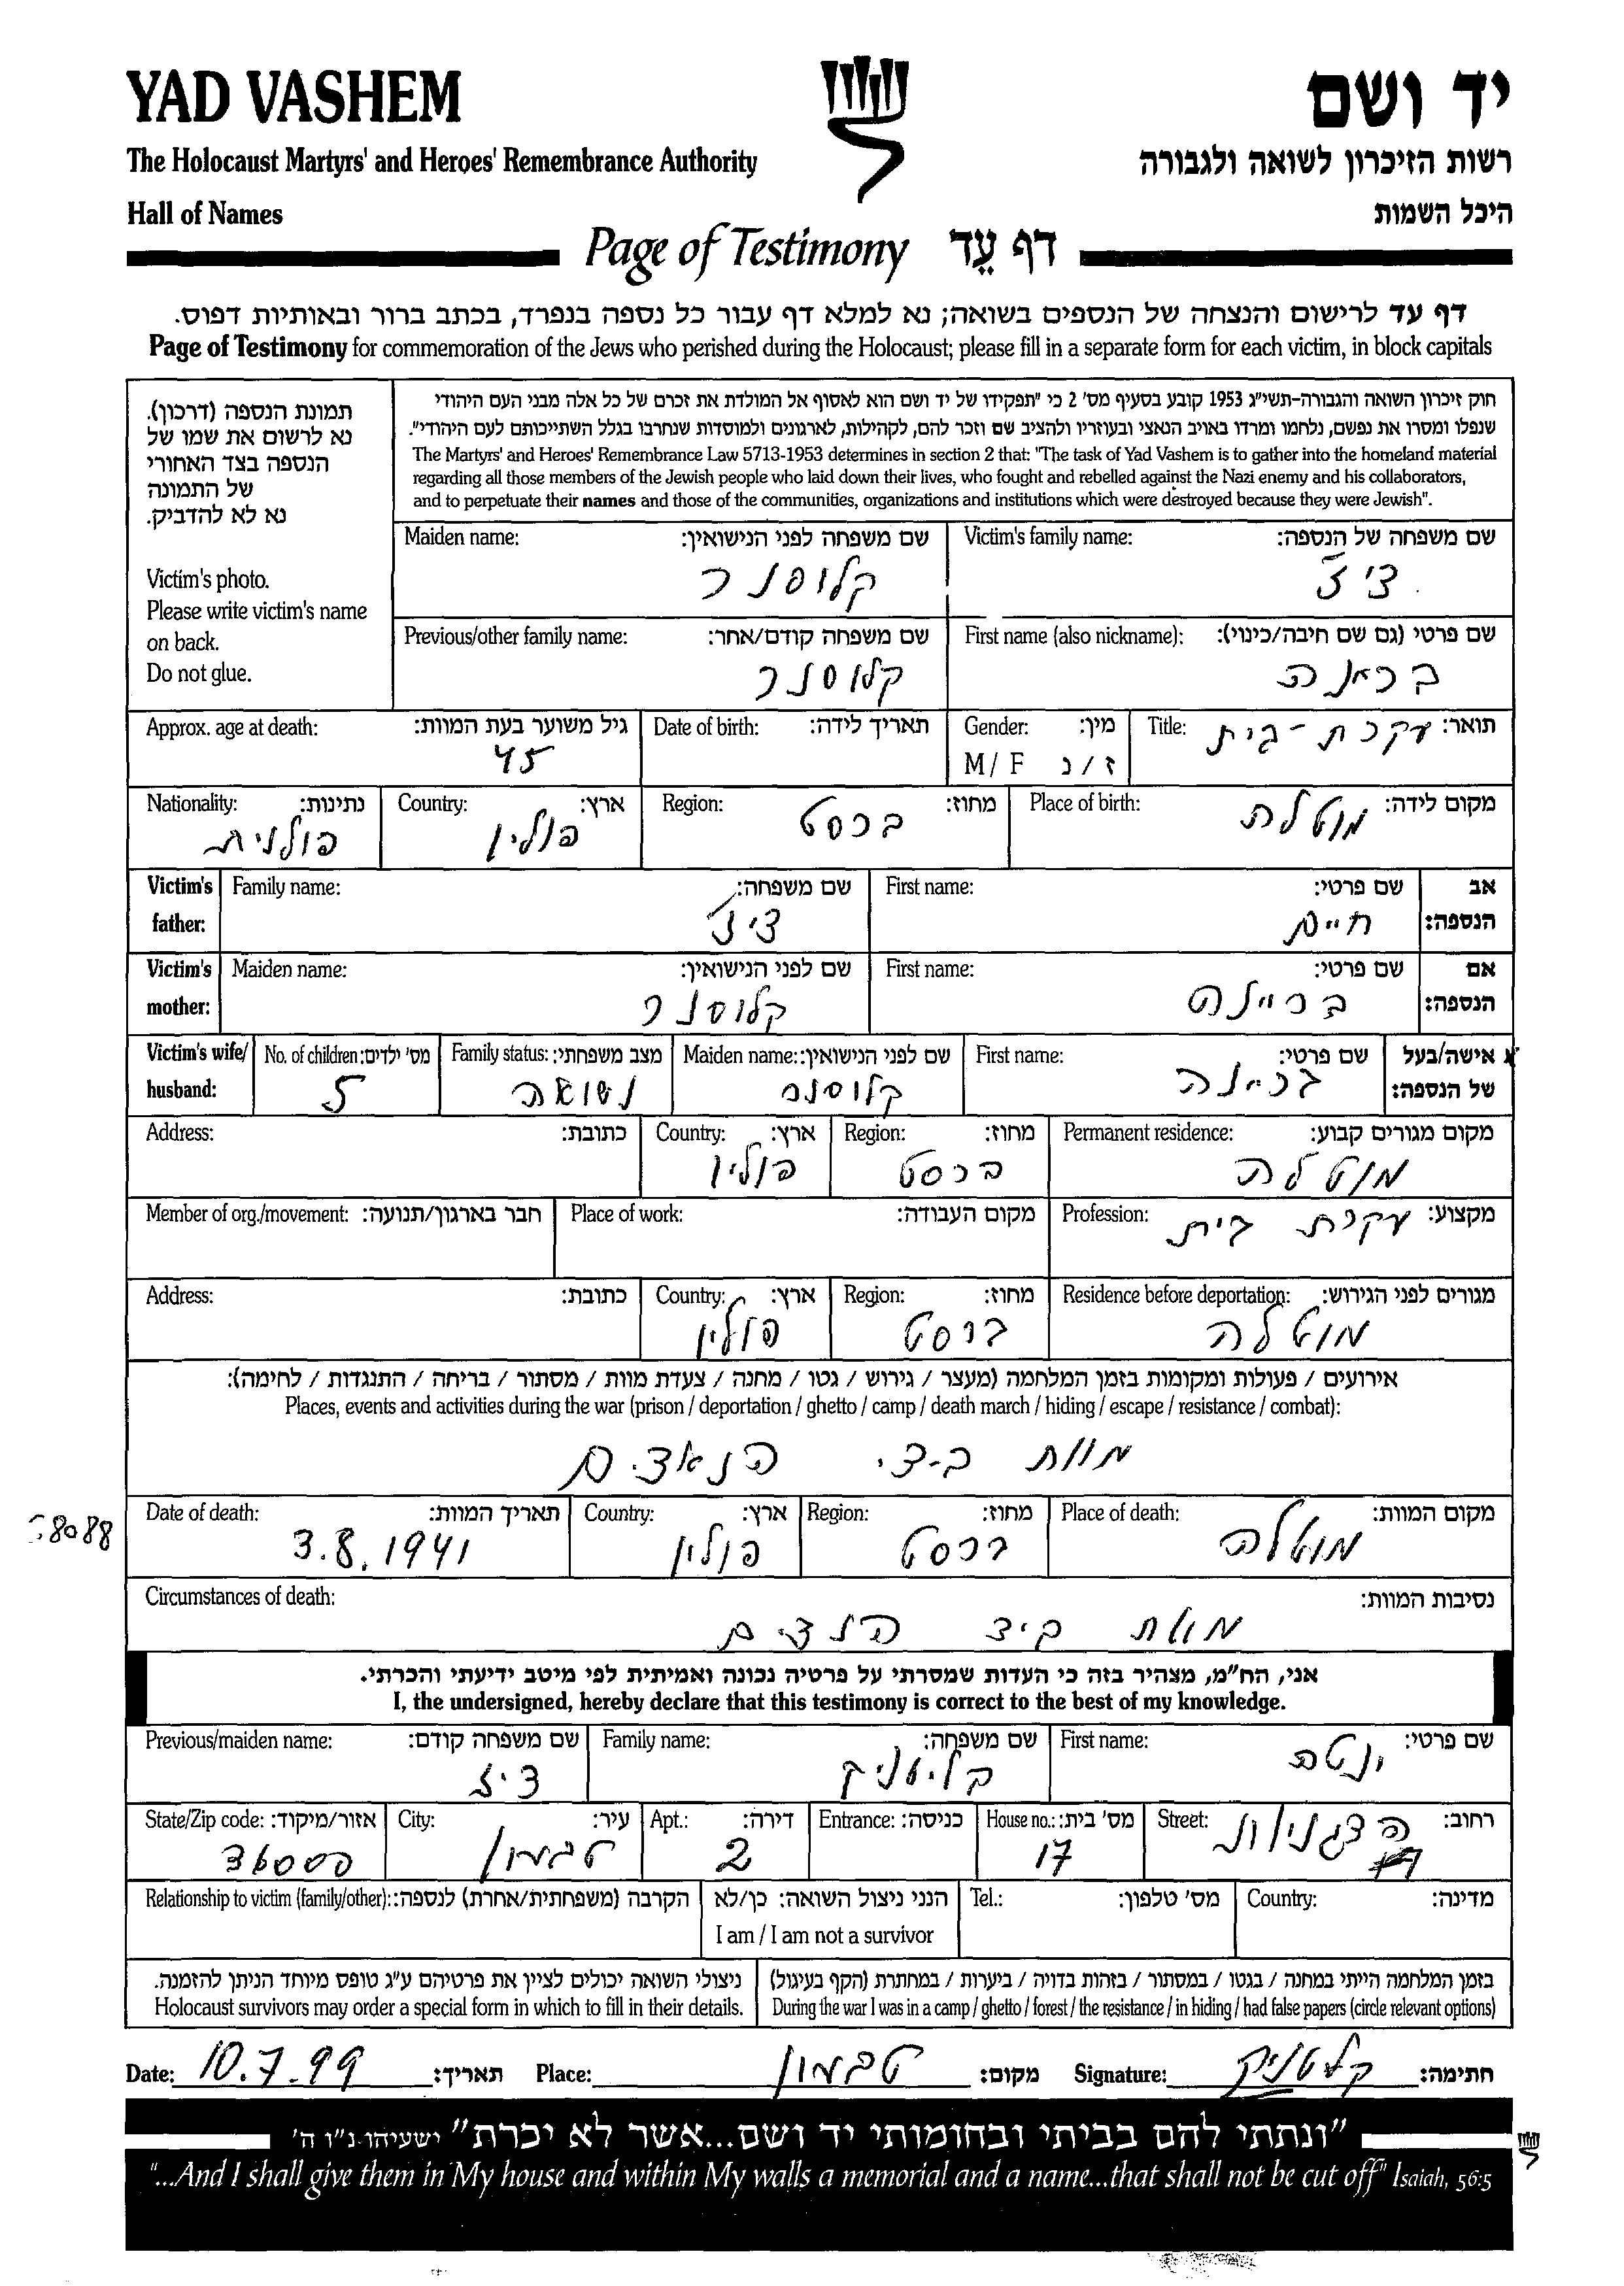 YAD VASHEM
יד ושם
The Holocaust Martyrs' and Heroes' Remembrance Authority
רשות הזיכרון לשואה ולגבורה
Hall of Names
היכל השמות
Page of Testimony דף עֵד
דף עד לרישום והנצחה של הנספים בשואה; נא למלא דף עבור כל נספה בנפרד, בכתב ברור ובאותיות דפוס.
Page of Testimony for commemoration of the Jews who perished during the Holocaust; please fill in a separate form for each victim, in block capitals
תמונת הנספה (דרכון).
נא לרשום את שמו של
הנספה בצד האחורי
של התמונה
נא לא להדביק.
Victim's photo.
Please write victim's name
on back.
Do not glue.
חוק זיכרון השואה והגבורה-תשי"ג 1953 קובע בסעיף מס' 2 כי "תפקידו של יד ושם הוא לאסוף אל המולדת את זכרם של כל אלה מבני העם היהודי
שנפלו ומסרו את נפשם, נלחמו ומרדו באויב הנאצי ובעוזריו ולהציב שם וזכר להם, לקהילות, לארגונים ולמוסדות שנחרבו בגלל השתייכותם לעם היהודי".
The Martyrs' and Heroes' Remembrance Law 5713-1953 determines in section 2 that: "The task of Yad Vashem is to gather into the homeland material
regarding all those members of the Jewish people who laid down their lives, who fought and rebelled against the Nazi enemy and his collaborators,
and to perpetuate their names and those of the communities, organizations and institutions which were destroyed because they were Jewish".
Victim's family name: שם משפחה של הנספה:
ציז
Maiden name: שם משפחה לפני הנישואין:
קלוסנר
First name (also nickname): שם פרטי (גם שם חיבה/כינוי):
בראנה
Previous/other family name: שם משפחה קודם/אחר:
קלוסנר
Title: תואר: עקרת-בית
Gender: מין:
M / F ז / נ
Date of birth: תאריך לידה:
Approx. age at death: גיל משוער בעת המוות:
45
Place of birth: מקום לידה:
מוטלת
Region: מחוז:
ברסט
Country: ארץ:
פולין
Nationality: נתינות:
פולנית
Victim's father: אב הנספה:
First name: שם פרטי:
חיים
Family name: שם משפחה:
ציז
Victim's mother: אם הנספה:
First name: שם פרטי:
בריינה
Maiden name: שם לפני הנישואין:
קלוסנר
Victim's wife/ husband: אישה/בעל של הנספה:
First name: שם פרטי:
Maiden name: שם לפני הנישואין:
קלוסנר
Family status: מצב משפחתי:
נשואה
No. of children: מס' ילדים:
5
Permanent residence: מקום מגורים קבוע:
מוטלה
Region: מחוז:
ברסט
Country: ארץ:
פולין
Address: כתובת:
Profession: מקצוע: עקרת בית
Place of work: מקום העבודה:
Member of org./movement: חבר בארגון/תנועה:
Residence before deportation: מגורים לפני הגירוש:
מוטלה
Region: מחוז:
ברסט
Country: ארץ:
פולין
Address: כתובת:
אירועים / פעולות ומקומות בזמן המלחמה (מעצר / גירוש / גטו / מחנה / צעדת מוות / מסתור / בריחה / התנגדות / לחימה):
Places, events and activities during the war (prison / deportation / ghetto / camp / death march / hiding / escape / resistance / combat):
מוות הנאצים
Place of death: מקום המוות:
מוטלה
Region: מחוז:
ברסט
Country: ארץ:
פולין
Date of death: תאריך המוות:
3.8.1941
Circumstances of death: נסיבות המוות:
ביד
אני, הח"מ, מצהיר בזה כי העדות שמסרתי על פרטיה נכונה ואמיתית לפי מיטב ידיעתי והכרתי.
I, the undersigned, hereby declare that this testimony is correct to the best of my knowledge.
First name: שם פרטי:
ינטה
Family name: שם משפחה:
Previous/maiden name: שם משפחה קודם:
ציז
Street: רחוב:
House no.: מס' בית:
17
Entrance: כניסה:
Apt.: דירה:
2
City: עיר:
טבעון
State/Zip code: אזור/מיקוד:
Country: מדינה:
Tel.: מס' טלפון:
הנני ניצול השואה: כן/לא
I am / I am not a survivor
Relationship to victim (family/other): הקרבה (משפחתית/אחרת) לנספה:
בזמן המלחמה הייתי במחנה / בגטו / במסתור / בזהות בדויה / ביערות / במחתרת (הקף בעיגול)
During the war I was in a camp / ghetto / forest / the resistance / in hiding / had false papers (circle relevant options)
ניצולי השואה יכולים לציין את פרטיהם ע"ג טופס מיוחד הניתן להזמנה.
Holocaust survivors may order a special form in which to fill in their details.
Date: 10.7.99 תאריך: Place: טבעון מקום: Signature: חתימה:
"ונתתי להם בביתי ובחומותי יד ושם...אשר לא יכרת" ישעיהו נ"ו ה'
"...And I shall give them in My house and within My walls a memorial and a name...that shall not be cut off" Isaiah, 56:5